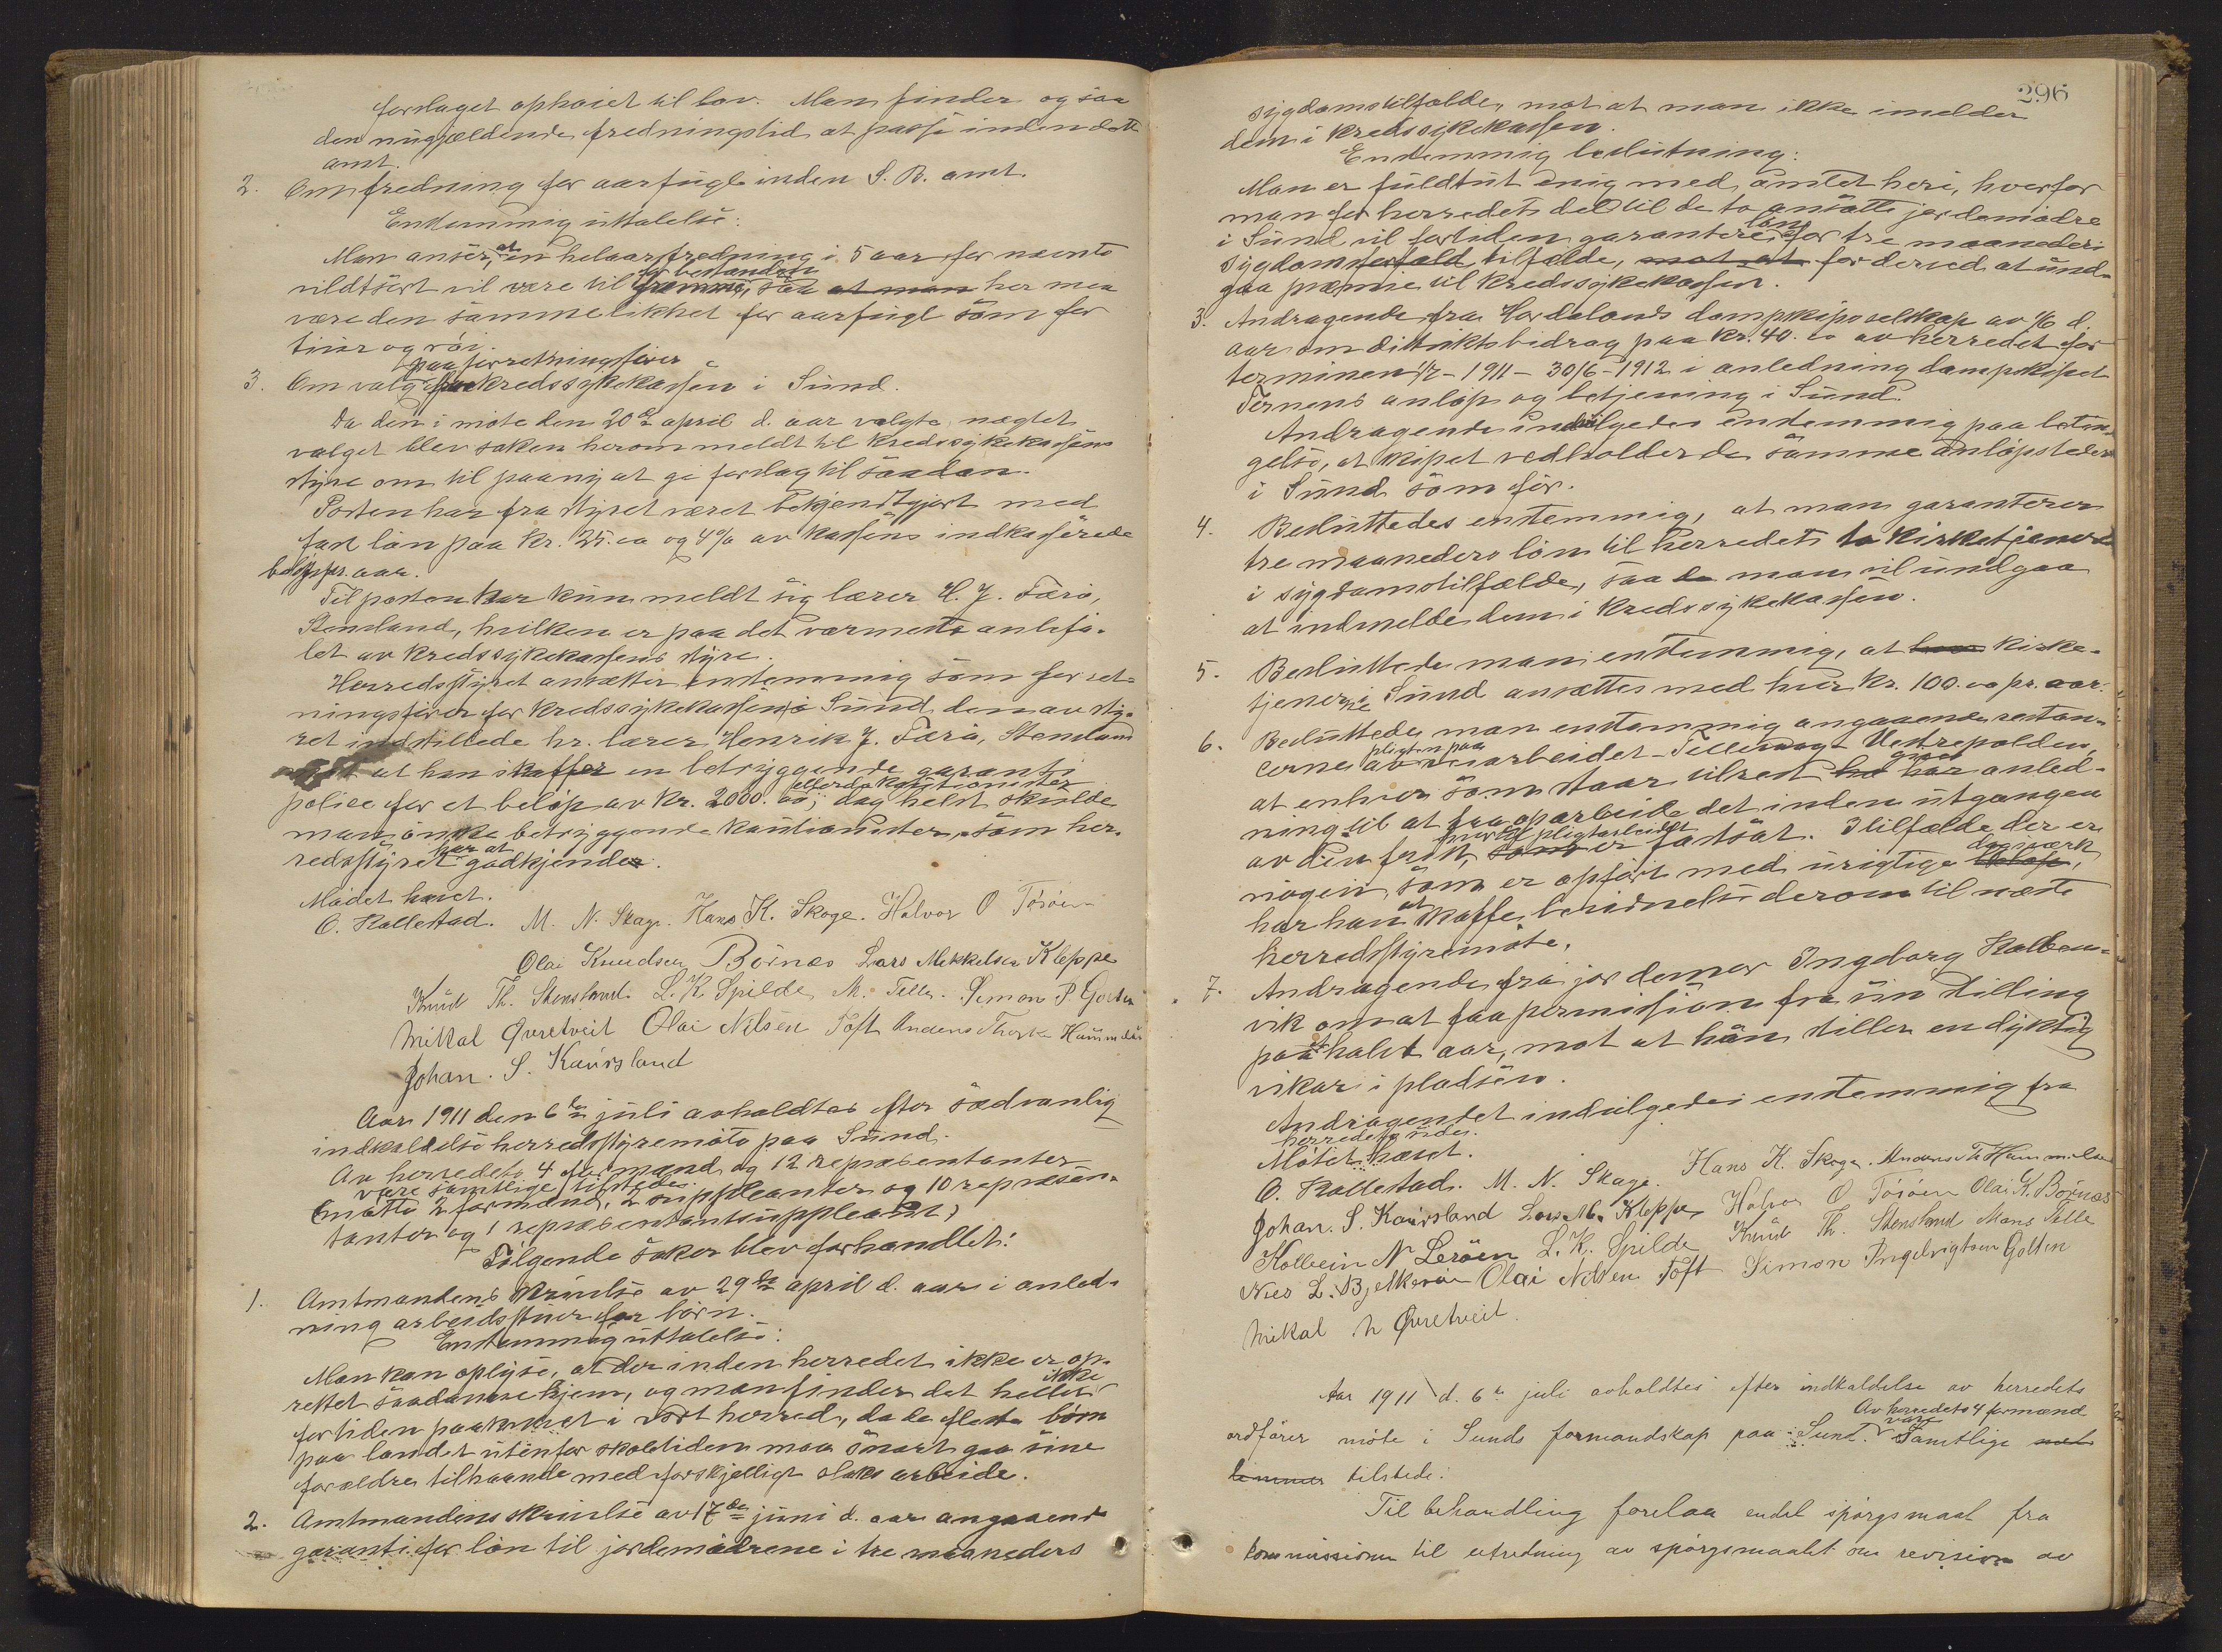 forslaget ophøiet til lov. Man finder ogsaa
den nugjældende fredningstid at passe inden dette
amt.
2. Om fredning for aarfugl inden S. B. amt.
Enstemmig uttalelse:
Man anser, at en helaarsfredning i 5 aar for nævnte
vildtsort vil være til fremme for bestanden, saa at man her maa
være den samme likhet for aarfugl som for
tiur og røi.
3. Om valg paa forretningsfører for kredssykekassen i Sund.
Da den i møte den 20de april d. aar valgte, nægtet
valget blev saken herom meldt til kredssykekassens
styre om til paany at gi forslag til saadan.
Posten har fra styret været bekjendtgjort med
fast løn paa kr. 25.00 og 4% av kassens indkasserede
beløp pr. aar.
Til posten har kun meldt sig lærer H. J. Færø,
Stensland, hvilken er paa det varmeste anbefa-
let av kredssykekassens styre.
Herredsstyret ansætter enstemmig som forret-
ningsfører for kredssykekassen i Sund den av sty-
ret indstillede hr. lærer Henrik J. Færø, Stensland
at han skaffer en betryggende garanti
police for et beløp av kr. 2000.00, eller da kautionister dog helst skulde
man ønske betryggende kautionister, som her-
redsstyret har at godkjende.
Mødet hævet.
O. Kallestad. M. N. Skage. Hans K. Skoge. Halvor O Tøsøen
Olai Knudsen Børnæs Lars Mikkelsen Kleppe
Knud Th. Stensland. L. K. Spilde M. Telle. Simon P Golten
Mikal Øvretveit Olai Nilsen Toft Anders Thorke Hummelsu
Johan. S. Kaursland
Aar 1911 den 6te juli avholdtes efter sædvanlig
indkaldelse herredsstyremøte paa Sund.
Av herredets 4 formænd og 12 repræsentanter
vare samtlige tilstede.
(møtte 2 formænd, 2 suppleanter og 10 repræsen-
tanter og 1 repræsentantsuppleant)
Følgende saker blev forhandlet:
1. Amtmandens skrivelse av 29de april d. aar i anled-
ning arbeidsstuer for børn.
Enstemmig uttalelse:
Man kan oplyse, at der inden herredet ikke er op-
rettet saadanne hjem, og man finder det heller ikke
fortiden paakrævet i vort herred, da de fleste børn
paa landet utenfor skoletiden maa snart gaa sine
forældre tilhaande med forskjelligt slaks arbeide.
2. Amtmandens skrivelse av 17de juni d. aar angaaende
garanti for løn til jordemødrene i tre maaneders
296
sygdomstilfælde, mot at man ikke imelder
dem i kredssykekassen.
Enstemmig beslutning:
Man er fuldtut enig med amtet heri, hvorfor
man for herredets del til de to ansatte jordemødre
i Sund vil fortiden garantere løn for tre maaneder i
sygdomsforfald tilfælde, mot at for derved at und-
gaa præmie til kredssykekassen.
3. Andragende fra Hordalands dampskipsselskap av 4/6 d.
aar om distriktsbidrag paa kr. 40.00 av herredet for
terminen 1/7 - 1911 - 30/6 - 1912 i anledning dampskipet
Ternens anløp og betjening i Sund.
Andragende indvilgedes enstemmig paa betin-
gelse, at skipet vedholder de samme anløpssteder
i Sund som før.
4. Besluttedes enstemmig, at man garanterer
tre maaneders løn til herredets to kirketjenere
i sygdomstilfælde, saa da man vil undgaa
at indmelde dem i kredssykekassen.
5. Besluttede man enstemmig, at kirke-
tjenerne i Sund ansættes med hver kr. 100.00 pr. aar.
6. Besluttedes man enstemmig angaaende restan-
cerne av pligten paa veiarbeidet Tellevaag Vestrepolden,
at enhver som staar tilrest ha har givet anled-
ning til at faa oparbeide det inden utgangen
av den frist, som er for pligtarbeidet fastsat. I tilfælde der er
nogen, som er opført med urigtige dagverk beløp,
har han at skaffe bevidnelse derom til næste
herredsstyremøte.
7. Andragende fra jordemor Ingeborg Kalben-
vik om at faa permission fra sin stilling
paa et halvt aar, mot at hun stiller en dyktig
vikar i pladsen.
Andragendet indvilgedes enstemmig fra
herredets side.
Møtet hævet.
O. Kallestad. M. N. Skage. Hans K. Skoge. Anders Th Hummelsu
Johan. S. Kaursland Lars M. Kleppe Halvor O Tøsøen Olai K. Børnæs
Kolbein N Lerøen L. K. Spilde Knud Th. Stensland Mons Telle
Nies L. Bjelkerøen Olai Nilsen Toft Simon Ingebrigtsen Golten
Mikal N Øvretveit.
Aar 1911 d. 6te juli avholdtes efter indkaldelse av herredets
ordfører møte i Sunds formandskap paa Sund. Av herredets 4 formænd vare Samtlige med-
lemmer tilstede.
Til behandling forelaa endel spørgsmaal fra
kommissionen til utredning av spørgsmaalet om revision av